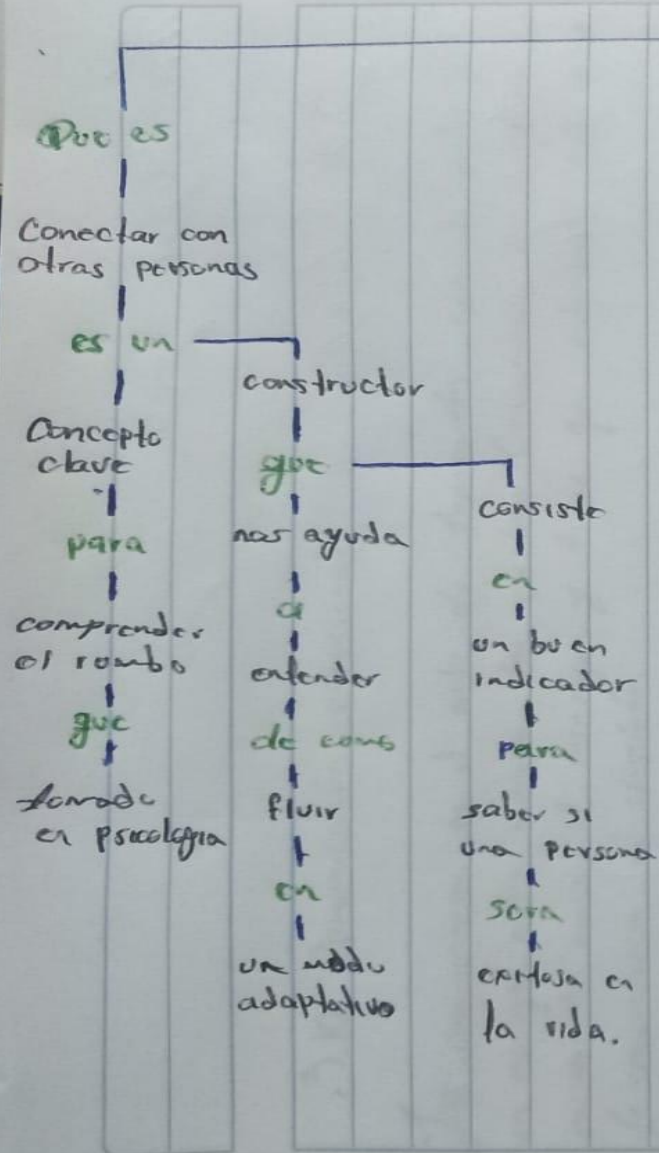 Que es
Conectar con
otras personas
es un
Concepto
clave
para
comprender
el rumbo
que
tomado
en psicologia
constructor
que
nos ayuda
a
entender
de como
fluir
en
un modo
adaptativo
consiste
en
un buen
indicador
para
saber si
una persona
sera
exitosa en
la vida.